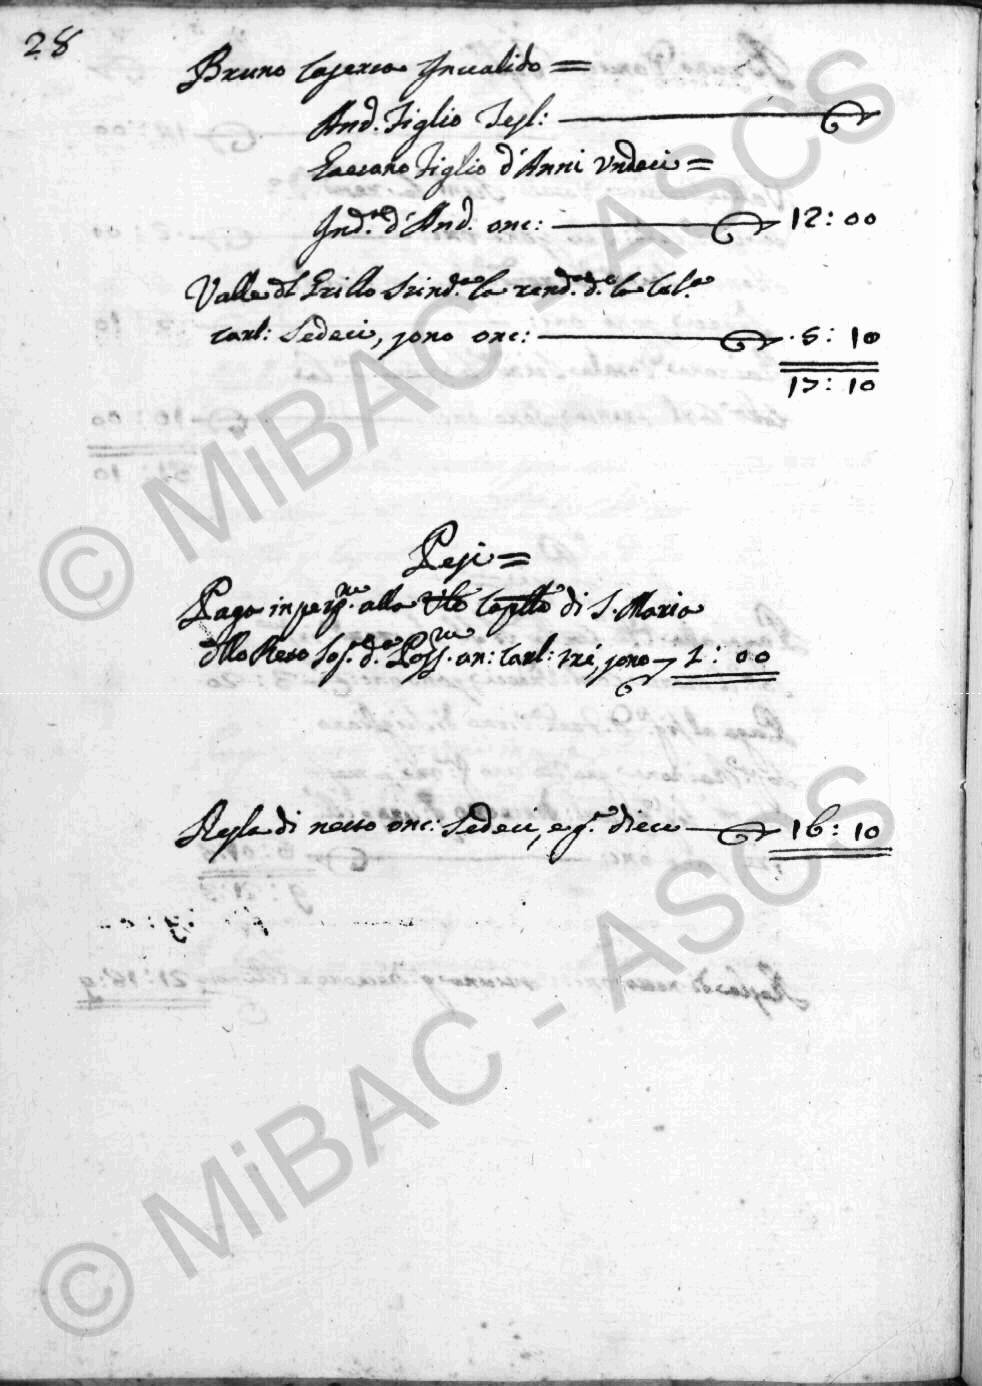 28
Bruno Caserta Inualido =
And. Figlio Tesl:
Gaetano Figlio d'Anni Vndeci =
Ind.a d'And. onc: 12: 00
Valle dl Grillo Stind.a la rend.a d.a
Carl: Sedeci, sono onc: .5: 10
17: 10
Pesi =
Paga in perp. alla Caplla di S. Maria
dllo Reto Sop. d.a Poss. an: Carl: tré, sono 1: 00
Resta di netto onc: Sedeci, e g. dieci 16: 10
© MiBAC - ASCS
© MiBAC - ASCS